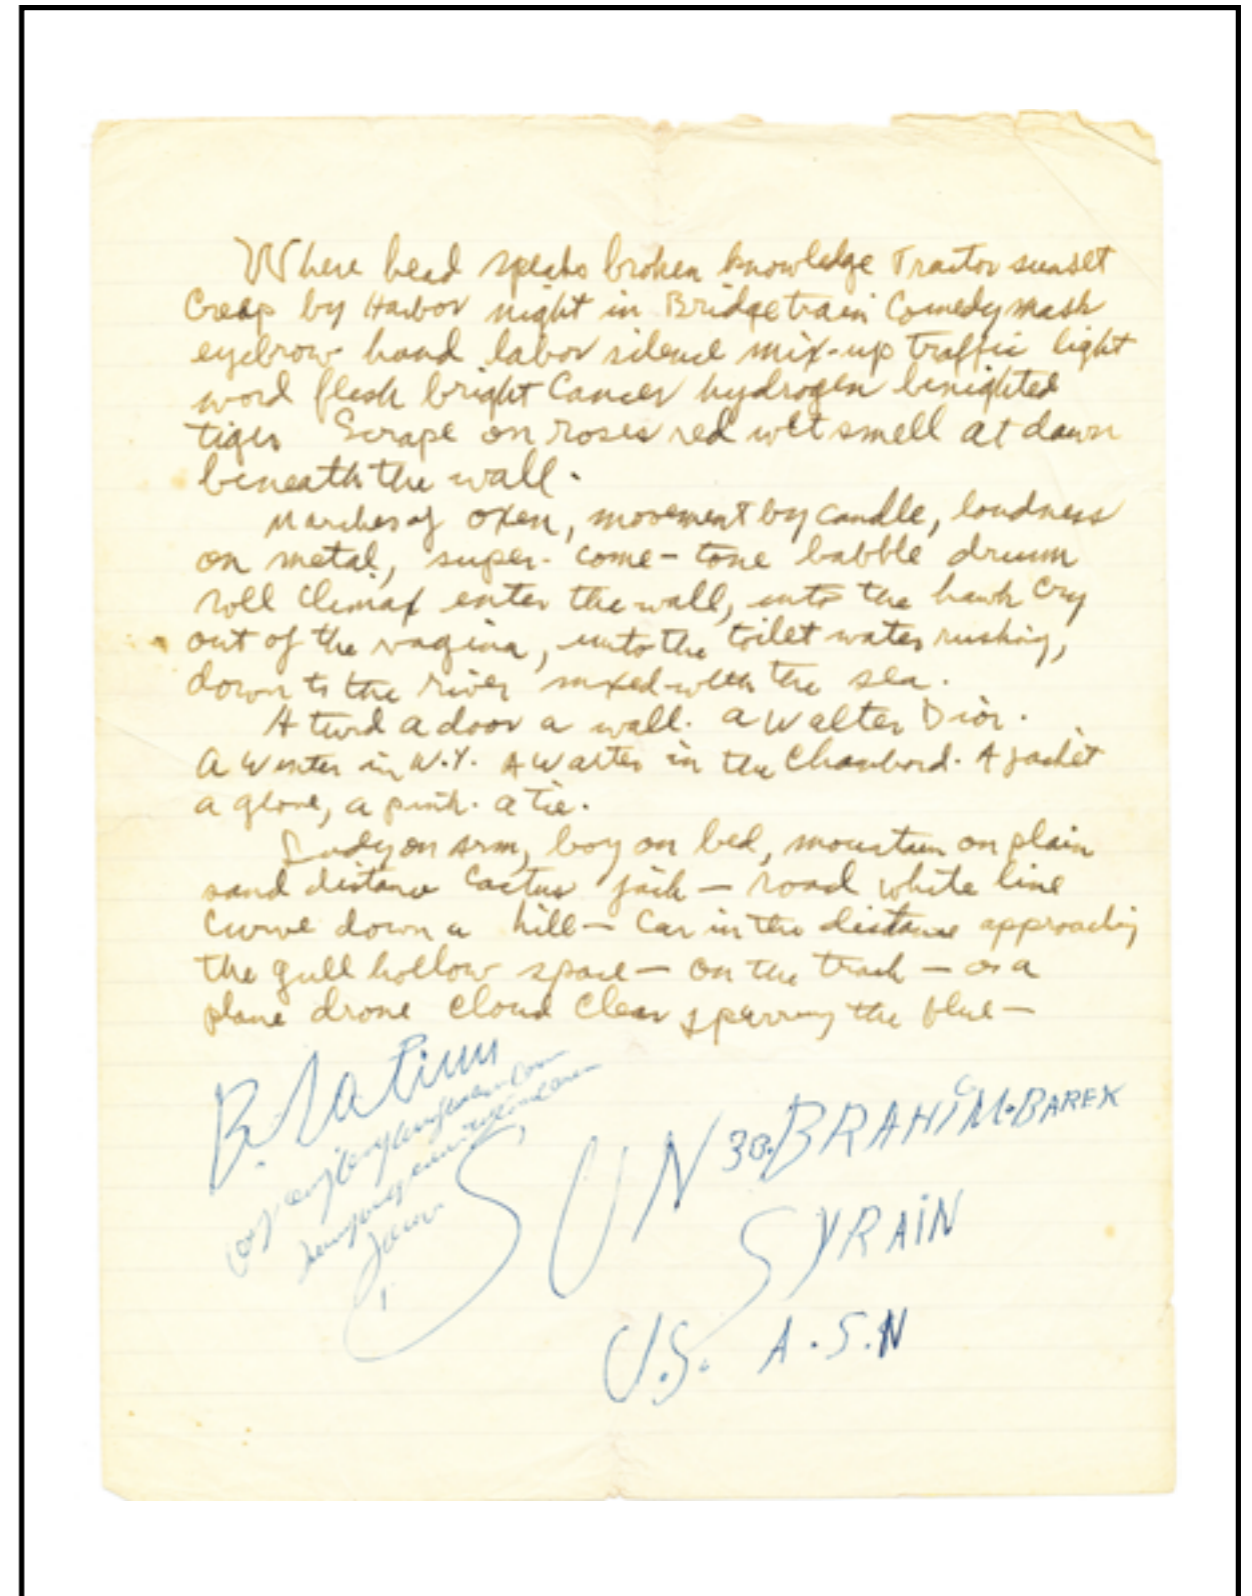 Where head speaks broken knowledge Tractor sunset
Creep by Harbor night in Bridge train Comedy mask
eyebrow hand labor silence mix-up traffic light
word flesh bright Cancer hydrogen benighted
tiger Scrape on roses red wet smell at dawn
beneath the wall.
Marches of oxen, movement by candle, loudness
on metal, super-come-tone babble drum
roll Climax enter the wall, unto the hawk Cry
out of the vagina, unto the toilet water rushing,
down to the river mixed with the sea.
A turd a door a wall. a Walter Dior.
A Winter in N.Y. A Waiter in the Chambord. A jacket
a glove, a pink. a tie.
Lady on arm, boy on bed, mountain on plain
sand distance Cactus jack — road white line
Curve down a hill — Car in the distance approaching
the gull hollow space — on the track — or a
plane drone cloud Clear the blue —
SUN 30. BRAHIM. BAREK
SYRAIN
U.S. A.S.N